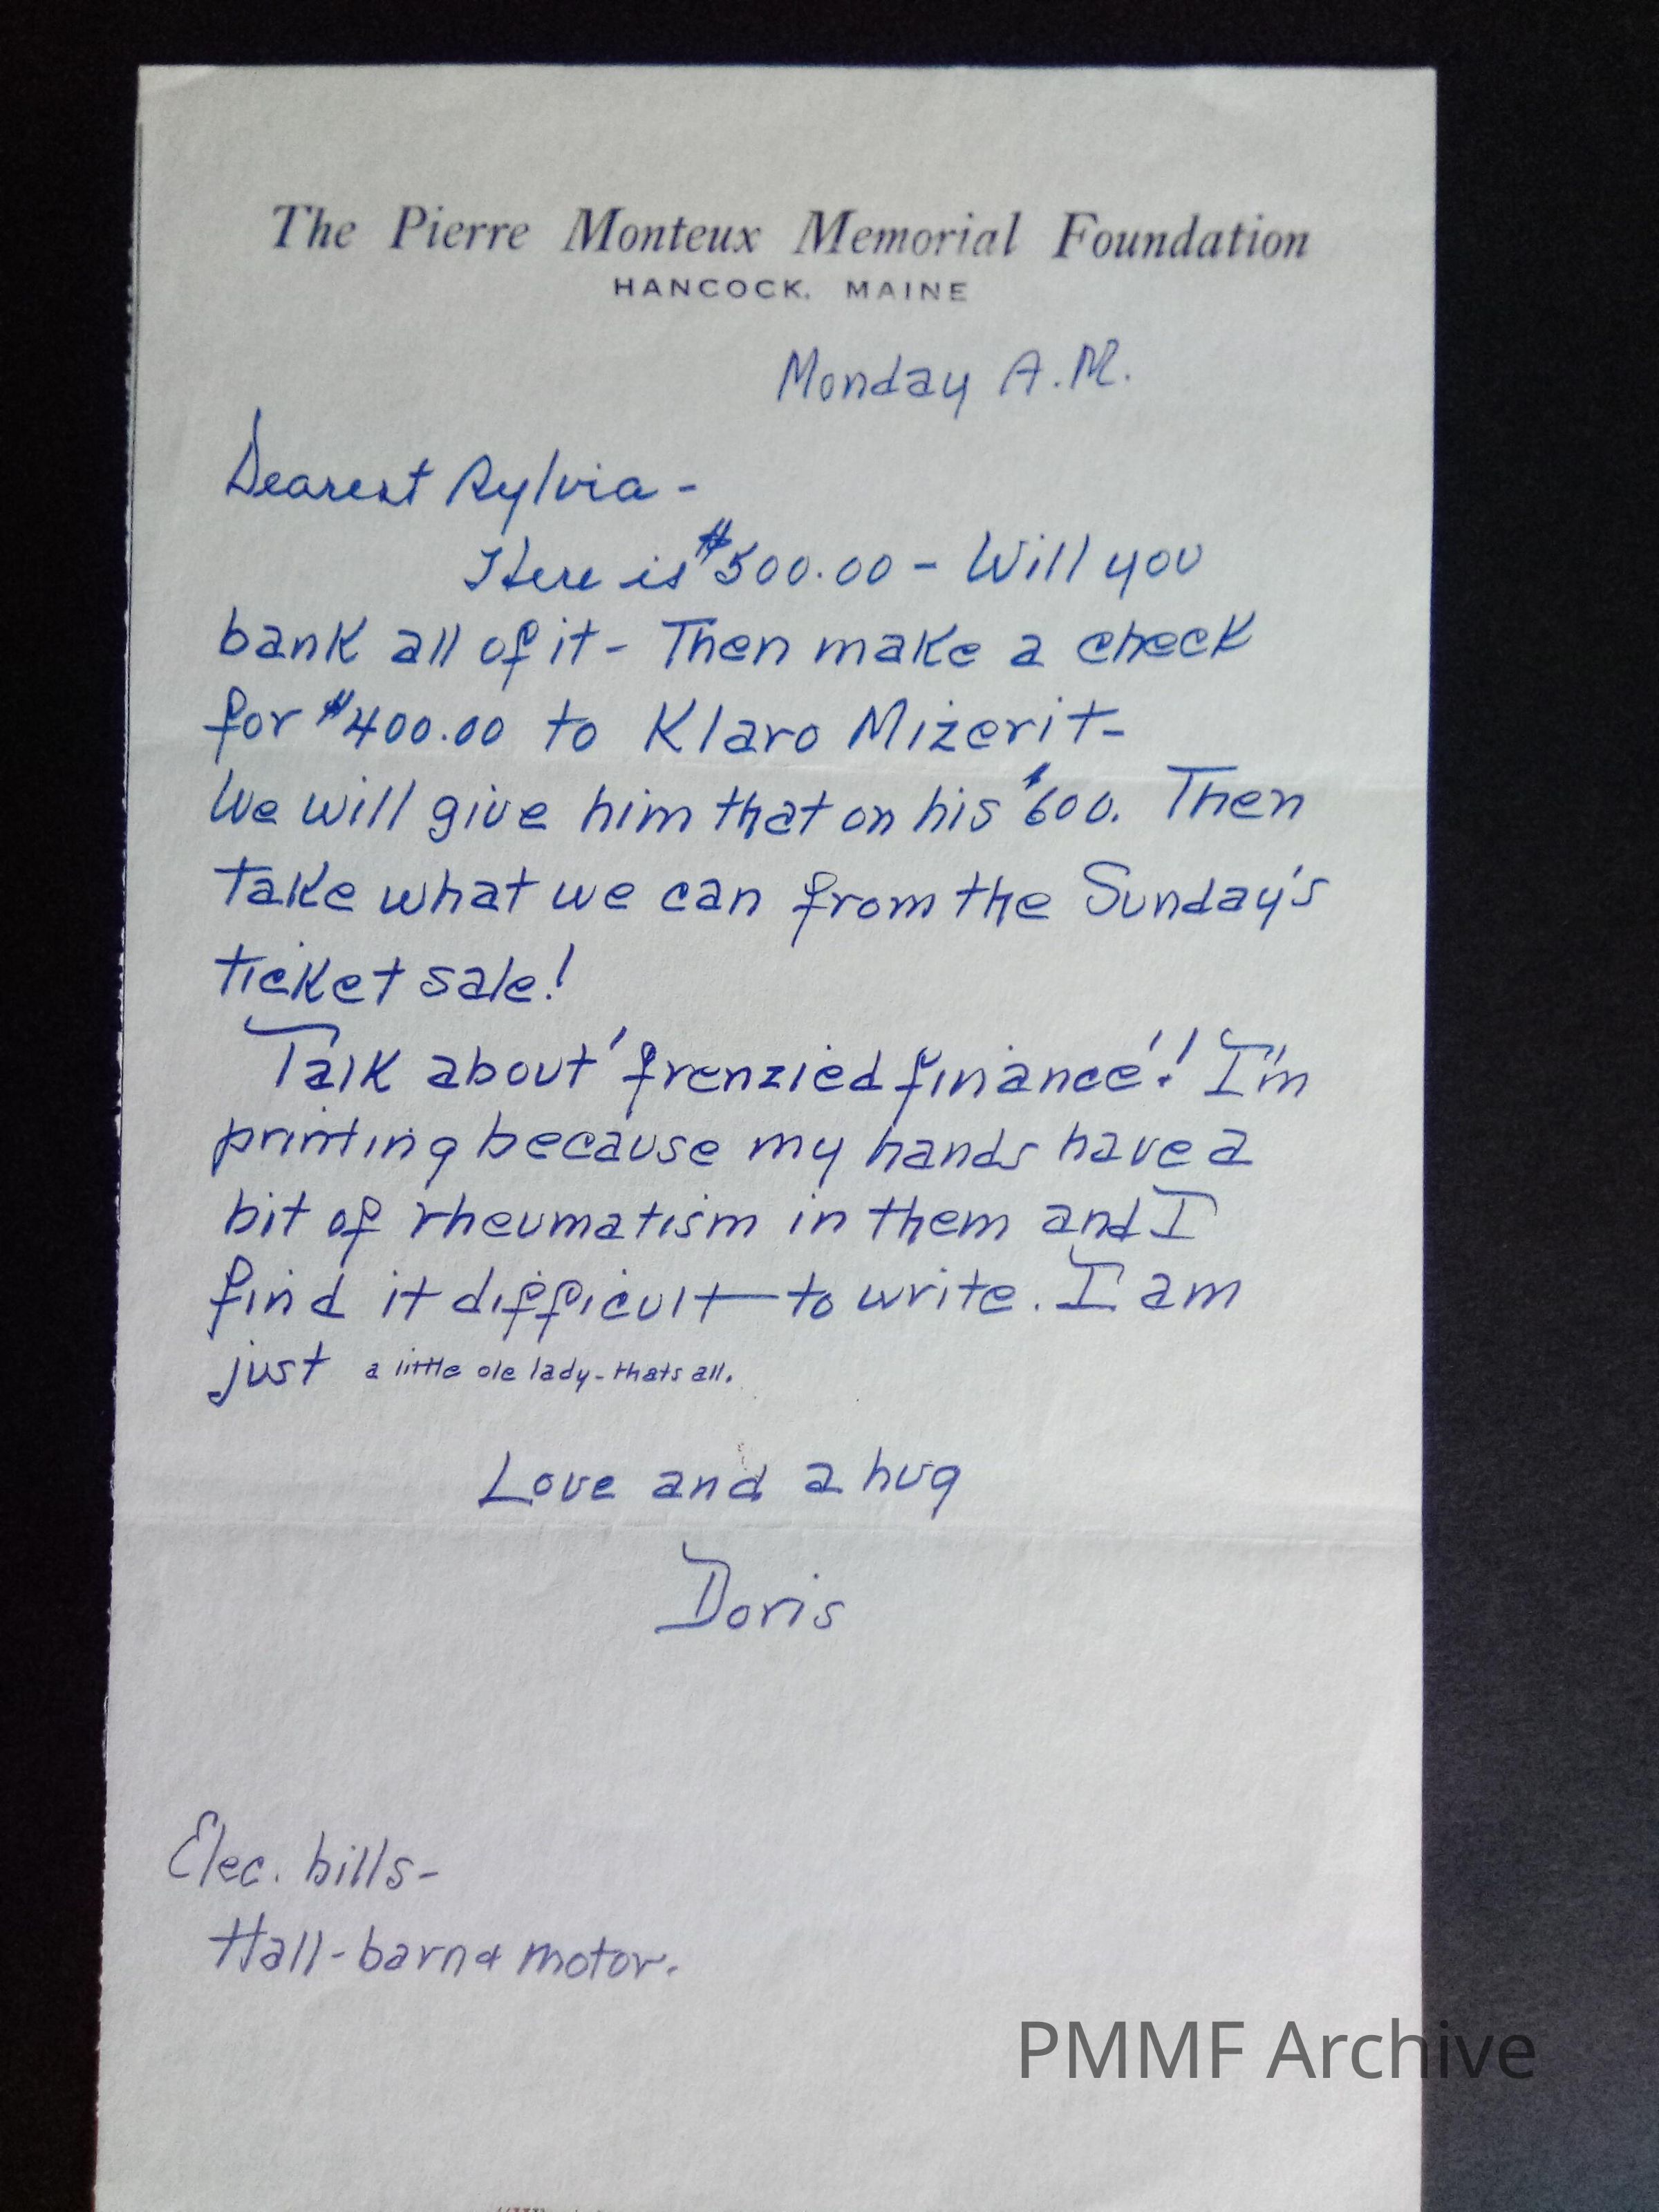 The Pierre Monteux Memorial Foundation
HANCOCK, MAINE
Monday A.M.
Dearest Sylvia -
Here is $500.00 - Will you
bank all of it - Then make a check
for $400.00 to Klaro Mizerit -
We will give him that on his $600. Then
take what we can from the Sunday's
ticket sale!
Talk about 'frenzied finance'! I'm
printing because my hands have a
bit of rheumatism in them and I
find it difficult to write. I am
just a little ole lady - thats all.
Love and a hug
Doris
Elec. bills -
Hall - barn & motor.
PMMF Archive